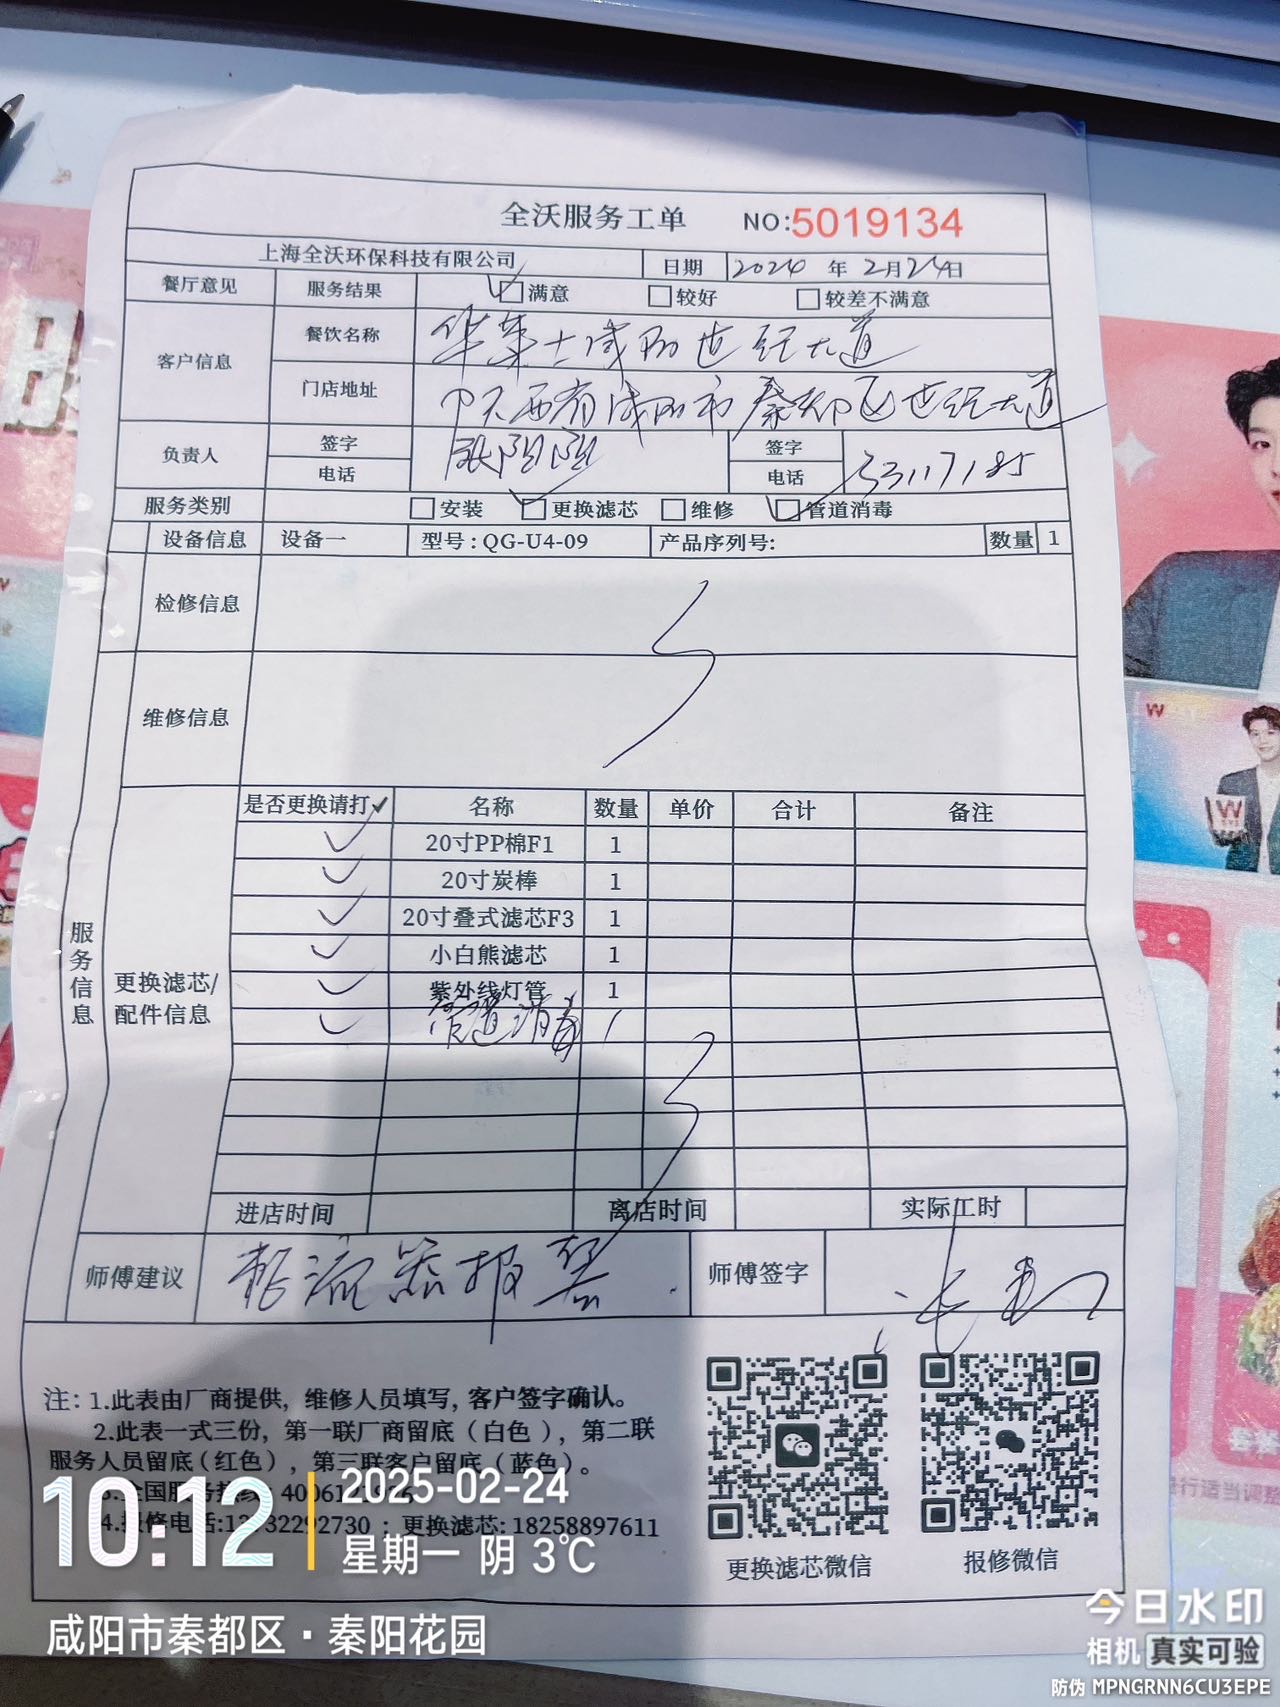 全沃服务工单 NO:5019134
上海全沃环保科技有限公司 日期 2024 年 2月24日
餐厅意见 服务结果 满意 较好 较差不满意
客户信息 餐饮名称 华莱士咸阳世纪大道
门店地址 陕西省咸阳市秦都区世纪大道
负责人 签字 签字
电话 电话
服务类别 安装 更换滤芯 维修 管道消毒
设备信息 设备一 型号：QG-U4-09 产品序列号： 数量 1
检修信息
维修信息
服务信息
更换滤芯/
配件信息
是否更换请打✓ 名称 数量 单价 合计 备注
✓ 20寸PP棉F1 1
✓ 20寸炭棒 1
✓ 20寸叠式滤芯F3 1
✓ 小白熊滤芯 1
✓ 紫外线灯管 1
✓ 管道消毒 1
进店时间 离店时间 实际工时
师傅建议 整流器报警 师傅签字
注：1.此表由厂商提供，维修人员填写，客户签字确认。
2.此表一式三份，第一联厂商留底（白色），第二联
服务人员留底（红色），第三联客户留底（蓝色）。
更换滤芯：18258897611
更换滤芯微信 报修微信
10:12
2025-02-24
星期一 阴 3℃
咸阳市秦都区·秦阳花园
今日水印
相机 真实可验
防伪 MPNGRNN6CU3EPE